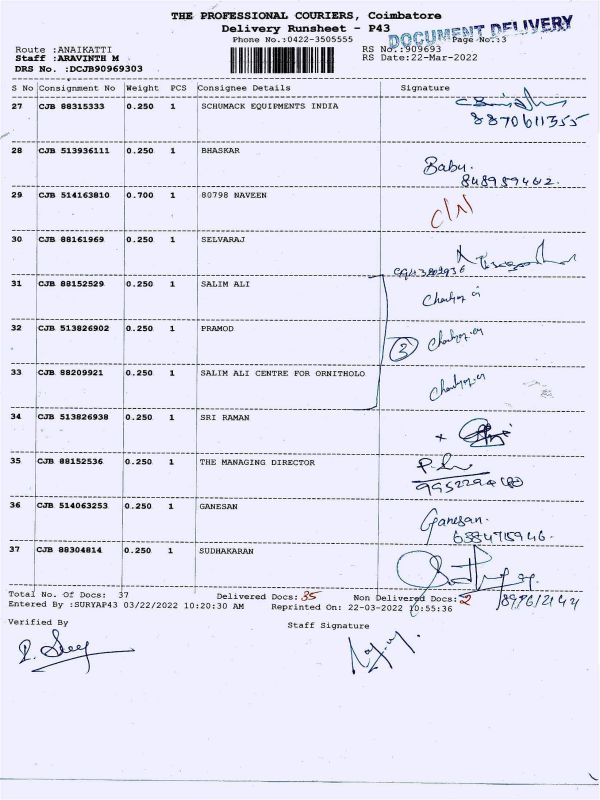 THE PROFESSIONAL COURIERS, Coimbatore
Delivery Runsheet - P43
DOCUMENT DELIVERY
Phone No.:0422-3505555 Page No.:3
Route :ANAIKATTI RS No.:909693
Staff :ARAVINTH M RS Date:22-Mar-2022
DRS No. :DCJB90969303
S No Consignment No Weight PCS Consignee Details Signature
27 CJB 88315333 0.250 1 SCHUMACK EQUIPMENTS INDIA
8870611355
28 CJB 513936111 0.250 1 BHASKAR
Babu.
29 CJB 514163810 0.700 1 80798 NAVEEN
30 CJB 88161969 0.250 1 SELVARAJ
31 CJB 88152529 0.250 1 SALIM ALI
32 CJB 513826902 0.250 1 PRAMOD
3
33 CJB 88209921 0.250 1 SALIM ALI CENTRE FOR ORNITHOLO
34 CJB 513826938 0.250 1 SRI RAMAN
35 CJB 88152536 0.250 1 THE MANAGING DIRECTOR
36 CJB 514063253 0.250 1 GANESAN
Ganesan.
37 CJB 88304814 0.250 1 SUDHAKARAN
Total No. Of Docs: 37 Delivered Docs: 35 Non Delivered Docs: 2
Entered By :SURYAP43 03/22/2022 10:20:30 AM Reprinted On: 22-03-2022 10:55:36
Verified By Staff Signature